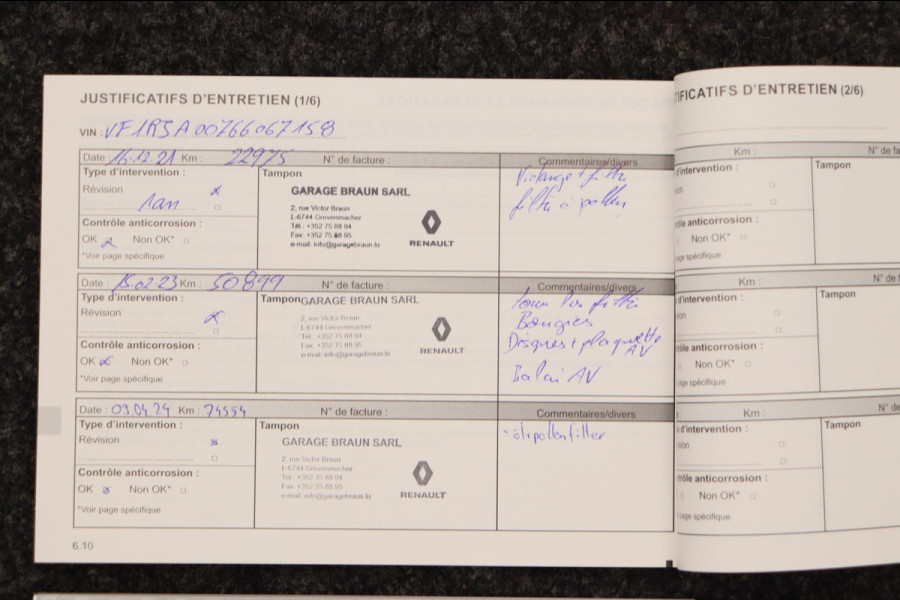 JUSTIFICATIFS D'ENTRETIEN (1/6)
VIN : VF1RJA00766067158
Date : 16.12.21 Km : 22975 N° de facture :
Commentaires/divers
Type d'intervention :
Révision
1an
Contrôle anticorrosion :
OK Non OK*
*Voir page spécifique
Tampon
GARAGE BRAUN SARL
2, rue Victor Braun
L-6744 Grevenmacher
Tél.: +352 75 88 94
Fax: +352 75 88 95
e-mail: info@garagebraun.lu
RENAULT
Vidange + filtre
filtre à pollen
Date : 15.02.23 Km : 50899 N° de facture :
Commentaires/divers
Type d'intervention :
Révision
Contrôle anticorrosion :
OK Non OK*
*Voir page spécifique
Tampon
GARAGE BRAUN SARL
2, rue Victor Braun
L-6744 Grevenmacher
Tél.: +352 75 88 94
Fax: +352 75 88 95
e-mail: info@garagebraun.lu
RENAULT
Tous les filtre
Bougies
Disques + plaquette
AV
Balai AV
Date : 09.04.24 Km : 74554 N° de facture :
Commentaires/divers
Type d'intervention :
Révision
Contrôle anticorrosion :
OK Non OK*
*Voir page spécifique
Tampon
GARAGE BRAUN SARL
2, rue Victor Braun
L-6744 Grevenmacher
Tél.: +352 75 88 94
Fax: +352 75 88 95
e-mail: info@garagebraun.lu
RENAULT
6.10
TIFICATIFS D'ENTRETIEN (2/6)
Km : N° de fa
d'intervention :
Tampon
rôle anticorrosion :
Non OK*
page spécifique
Km : N° de f
d'intervention :
Tampon
rôle anticorrosion :
Non OK*
page spécifique
Km : N° de
d'intervention :
Tampon
rôle anticorrosion :
Non OK*
page spécifique